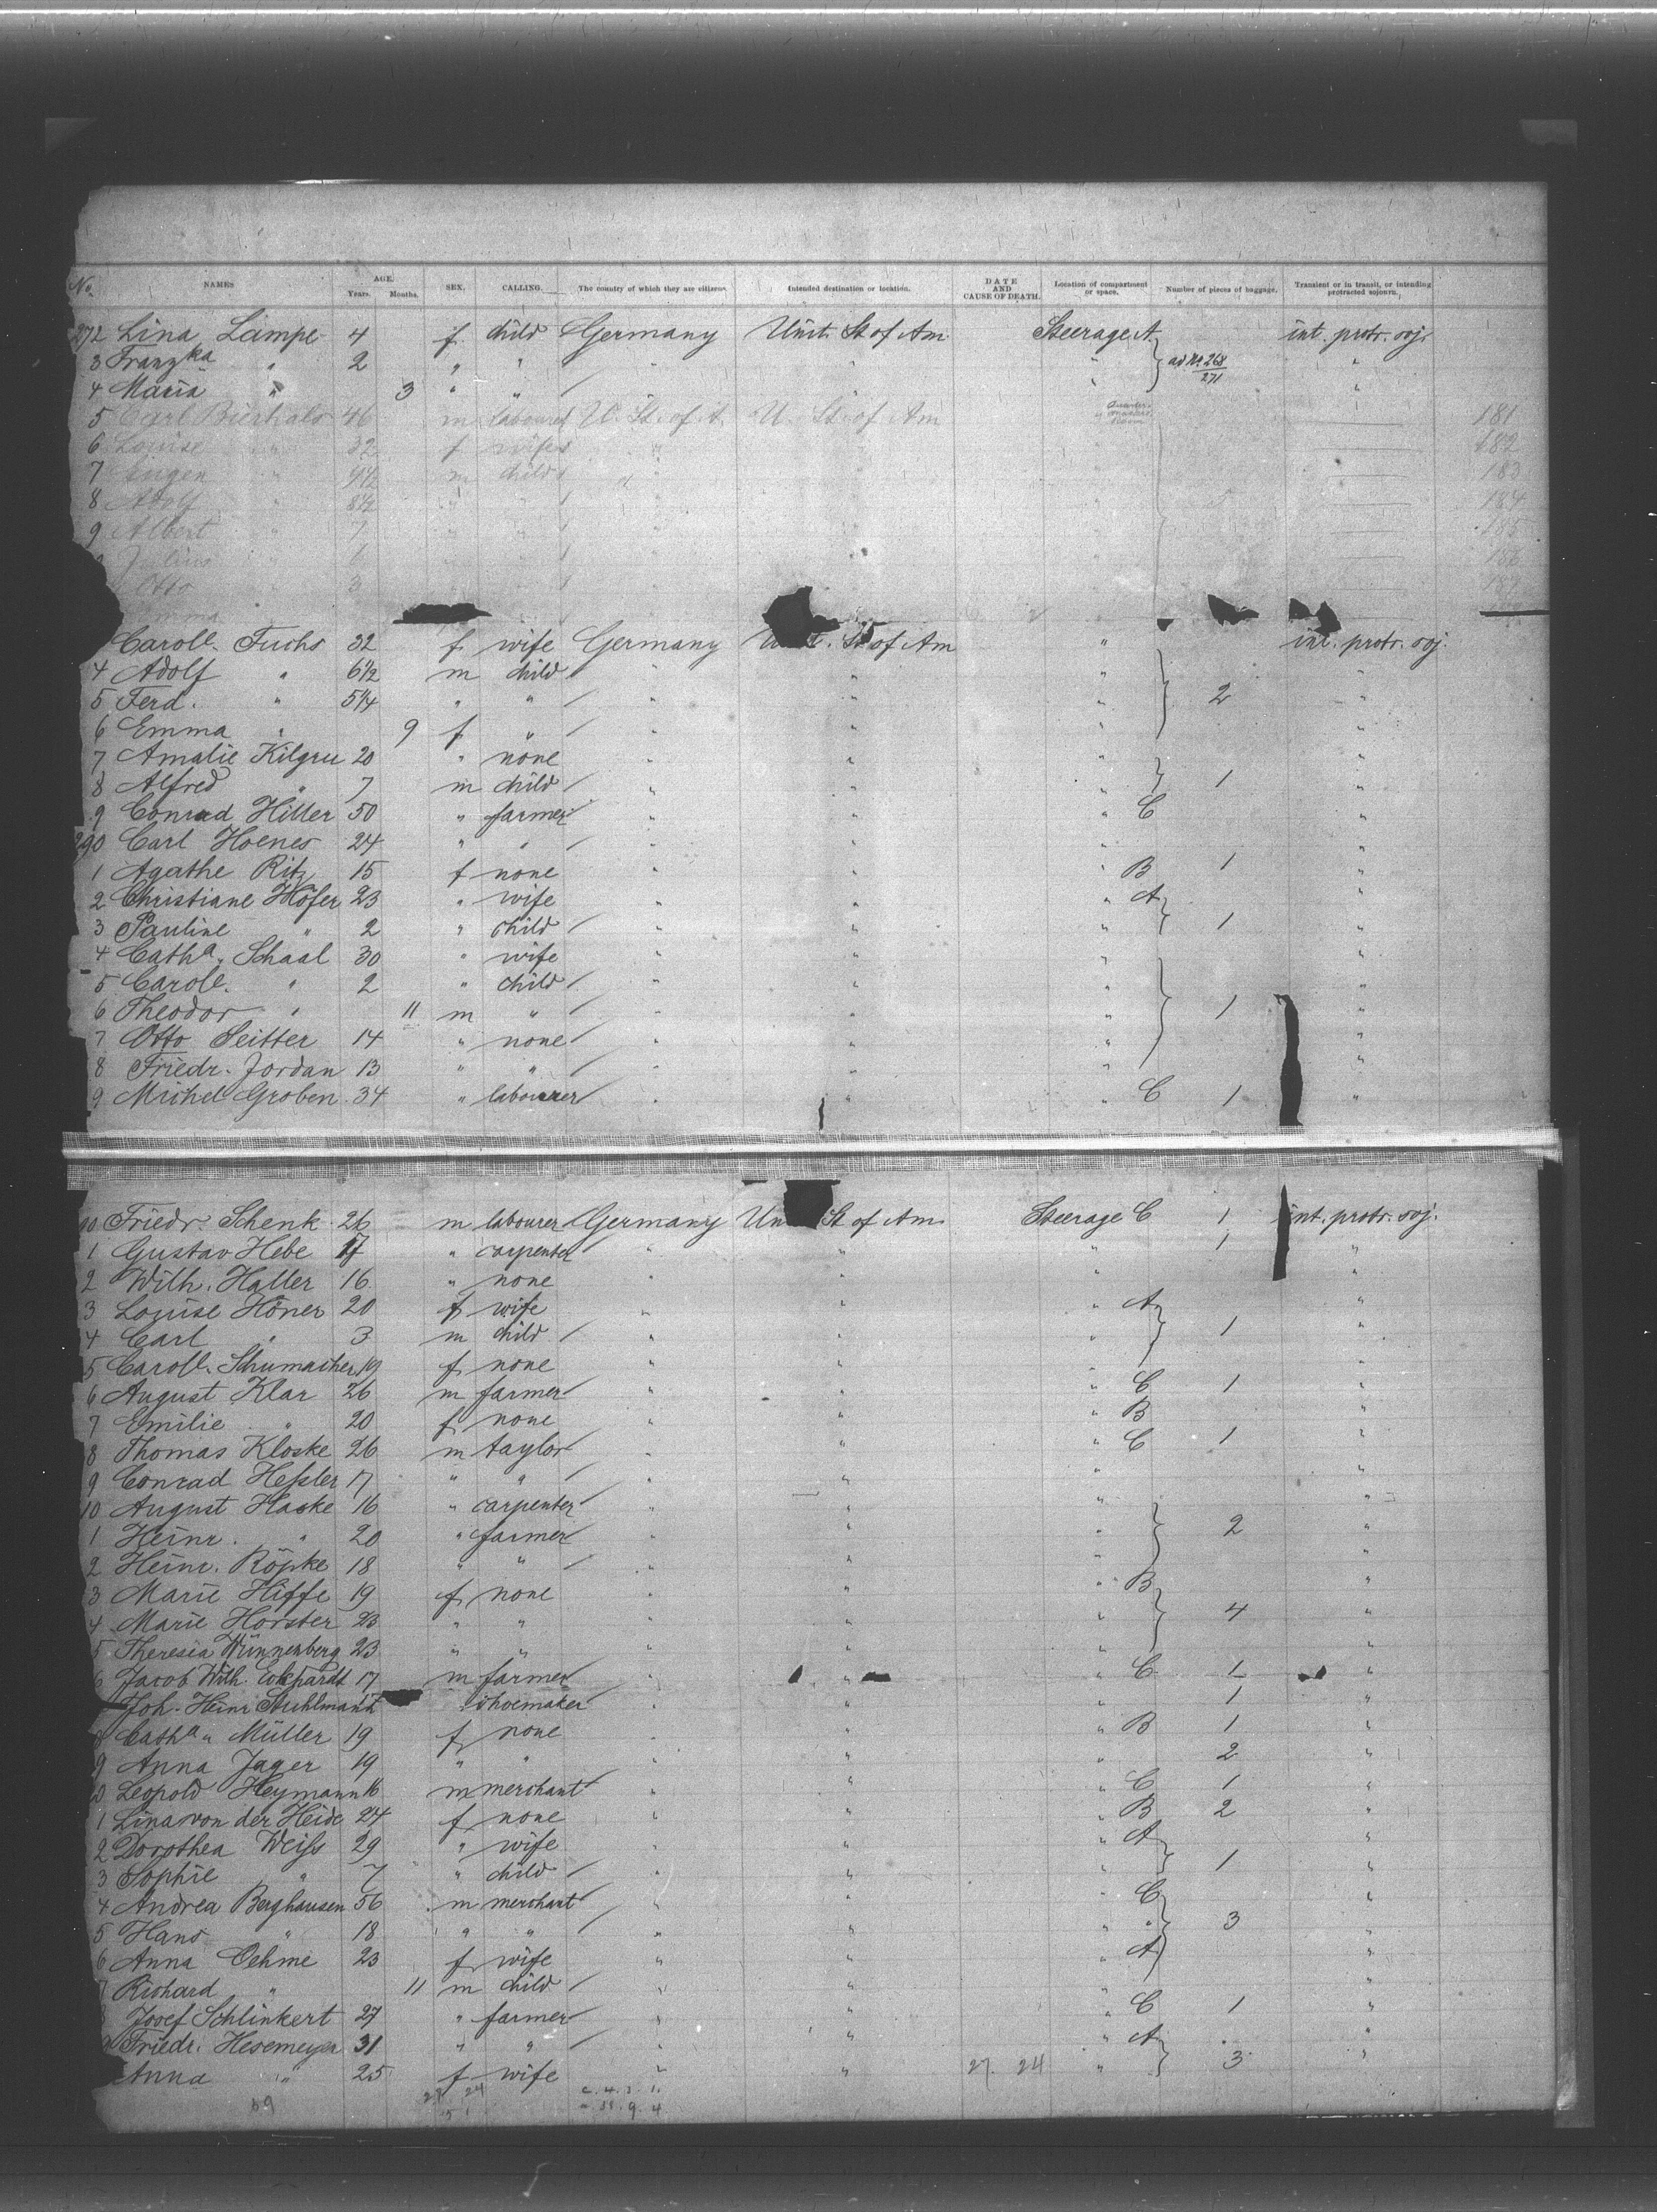 No. NAMES AGE. Years. Months. SEX. CALLING. The country of which they are citizens. Intended destination or location. DATE AND CAUSE OF DEATH. Location of compartment or space. Number of pieces of baggage. Transient or in transit, or intending protracted sojourn.
272 Lina Lampe 4 f. child Germany Unit. St of Am. Steerage A int. protr. soj.
3 Franzka " 2 " " " " " ad No. 268/271 "
4 Maria " 3 " " " " " "
5 Carl Bierhals 46 m labourer U. St. of A. U. St. of Am 181
6 Louise " 32 f wife " " " 182
7 Eugen " 9 1/2 m child " " " 183
8 Adolf " 8 1/2 " " " " " 5 184
9 Albert " 7 " " " " " 185
Julius " 6 " " " " " 186
Otto " 3 " " " " " 187
Emma
Caroll. Fuchs 32 f wife Germany St of Am " int. protr. soj.
4 Adolf " 6 1/2 m child " " " "
5 Ferd. " 5 1/4 " " " " " 2 "
6 Emma " 9 f " " " " "
7 Amalie Kilgru 20 " none " " " "
8 Alfred " 7 m child " " " 1 "
9 Conrad Hiller 50 " farmer " " " C "
290 Carl Hoenes 24 " " " " " "
1 Agathe Ritz 15 f none " " " B 1 "
2 Christiane Höfer 23 " wife " " " A "
3 Pauline " 2 " child " " " 1 "
4 Catha. Schaal 30 " wife " " " "
5 Caroll. " 2 " child " " " "
6 Theodor " 11 m " " " " 1 "
7 Otto Seitter 14 " none " " " "
8 Friedr. Jordan 13 " " " " " "
9 Michel Groben 34 " labourer " " " C 1 "
Friedr. Schenk 26 m labourer Germany Un St of Am. Steerage C 1 int. protr. soj.
1 Gustav Hebe 17 " carpenter " " " 1 "
2 Wilh. Haller 16 " none " " " "
3 Louise Höner 20 f wife " " " A "
4 Carl " 3 m child " " " 1 "
5 Caroll. Schumacher 19 f none " " "
6 August Klar 26 m farmer " " " C 1 "
7 Emilie " 20 f none " " " B "
8 Thomas Kloske 26 m taylor " " " C 1 "
9 Conrad Heßler 17 " " " " " "
10 August Haske 16 " carpenter " " " "
1 Heinr. " 20 " farmer " " " 2 "
2 Heinr. Röpke 18 " " " " " "
3 Marie Hiffe 19 f none " " " B "
4 Marie Horster 23 " " " " " 4 "
5 Theresia Wünnenberg 23 " " " " " "
6 Jacob Wilh. Eckhardt 17 m farmer " " " C 1 "
Joh. Heinr Stuhlmann 17 " shoemaker " " " 1 "
8 Catha " Müller 19 f none " " " B 1 "
9 Anna Jager 19 " " " " " 2 "
Leopold Heymann 16 m merchant " " " C 1 "
1 Lina von der Heide 24 f none " " " B 2 "
2 Dorothea Weiß 29 " wife " " " A "
3 Sophie " 7 " child " " " 1 "
4 Andrea Berghausen 56 m merchant " " " C "
5 Hans " 18 " " " " " " 3 "
6 Anna Oehme 23 f wife " " " A "
7 Richard " 11 m child " " "
Josef Schlinkert 27 " farmer " " " C 1 "
Friedr. Hesemeyer 31 " " " " " A "
Anna " 25 f wife " " 27. 24 " 3 "
59 27 24 51